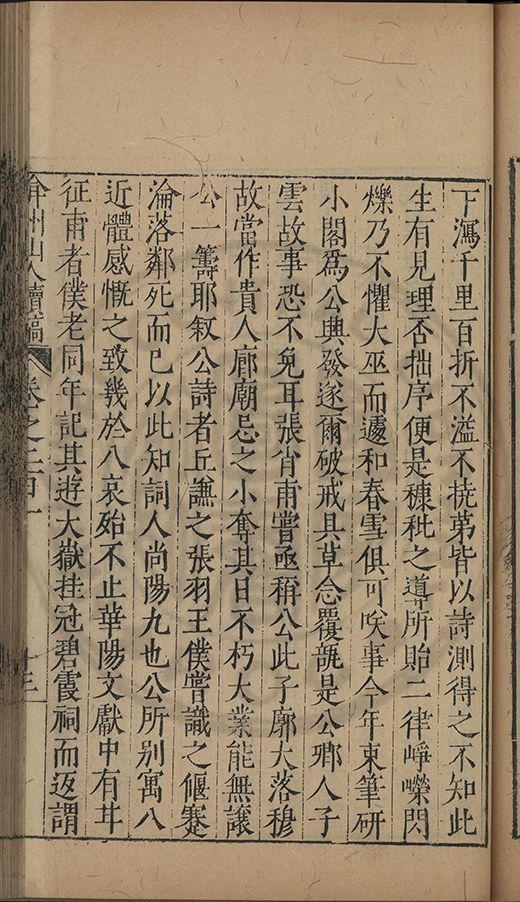 下瀉千里百折不溢不撓第皆以詩測得之不知此
生有見理否拙序便是糠秕之導所貽二律崢嶸閃
爍乃不懼大巫而遽和春雪俱可咲事今年束筆研
小閣爲公興發遂爾破戒具草念覆瓿是公鄉人子
雲故事恐不免耳張肖甫嘗亟稱公此子廓大落穆
故當作貴人廊廟忌之小奪其日不朽大業能無讓
公一籌耶叙公詩者丘謙之張羽王僕嘗識之偃蹇
淪落鄰死而已以此知詞人尚陽九也公所別寓八
近體感慨之致幾於八哀殆不止華陽文獻中有廾
征甫者僕老同年記其遊大嶽挂冠碧霞祠而返謂
弇州山人續稿 卷之二百一